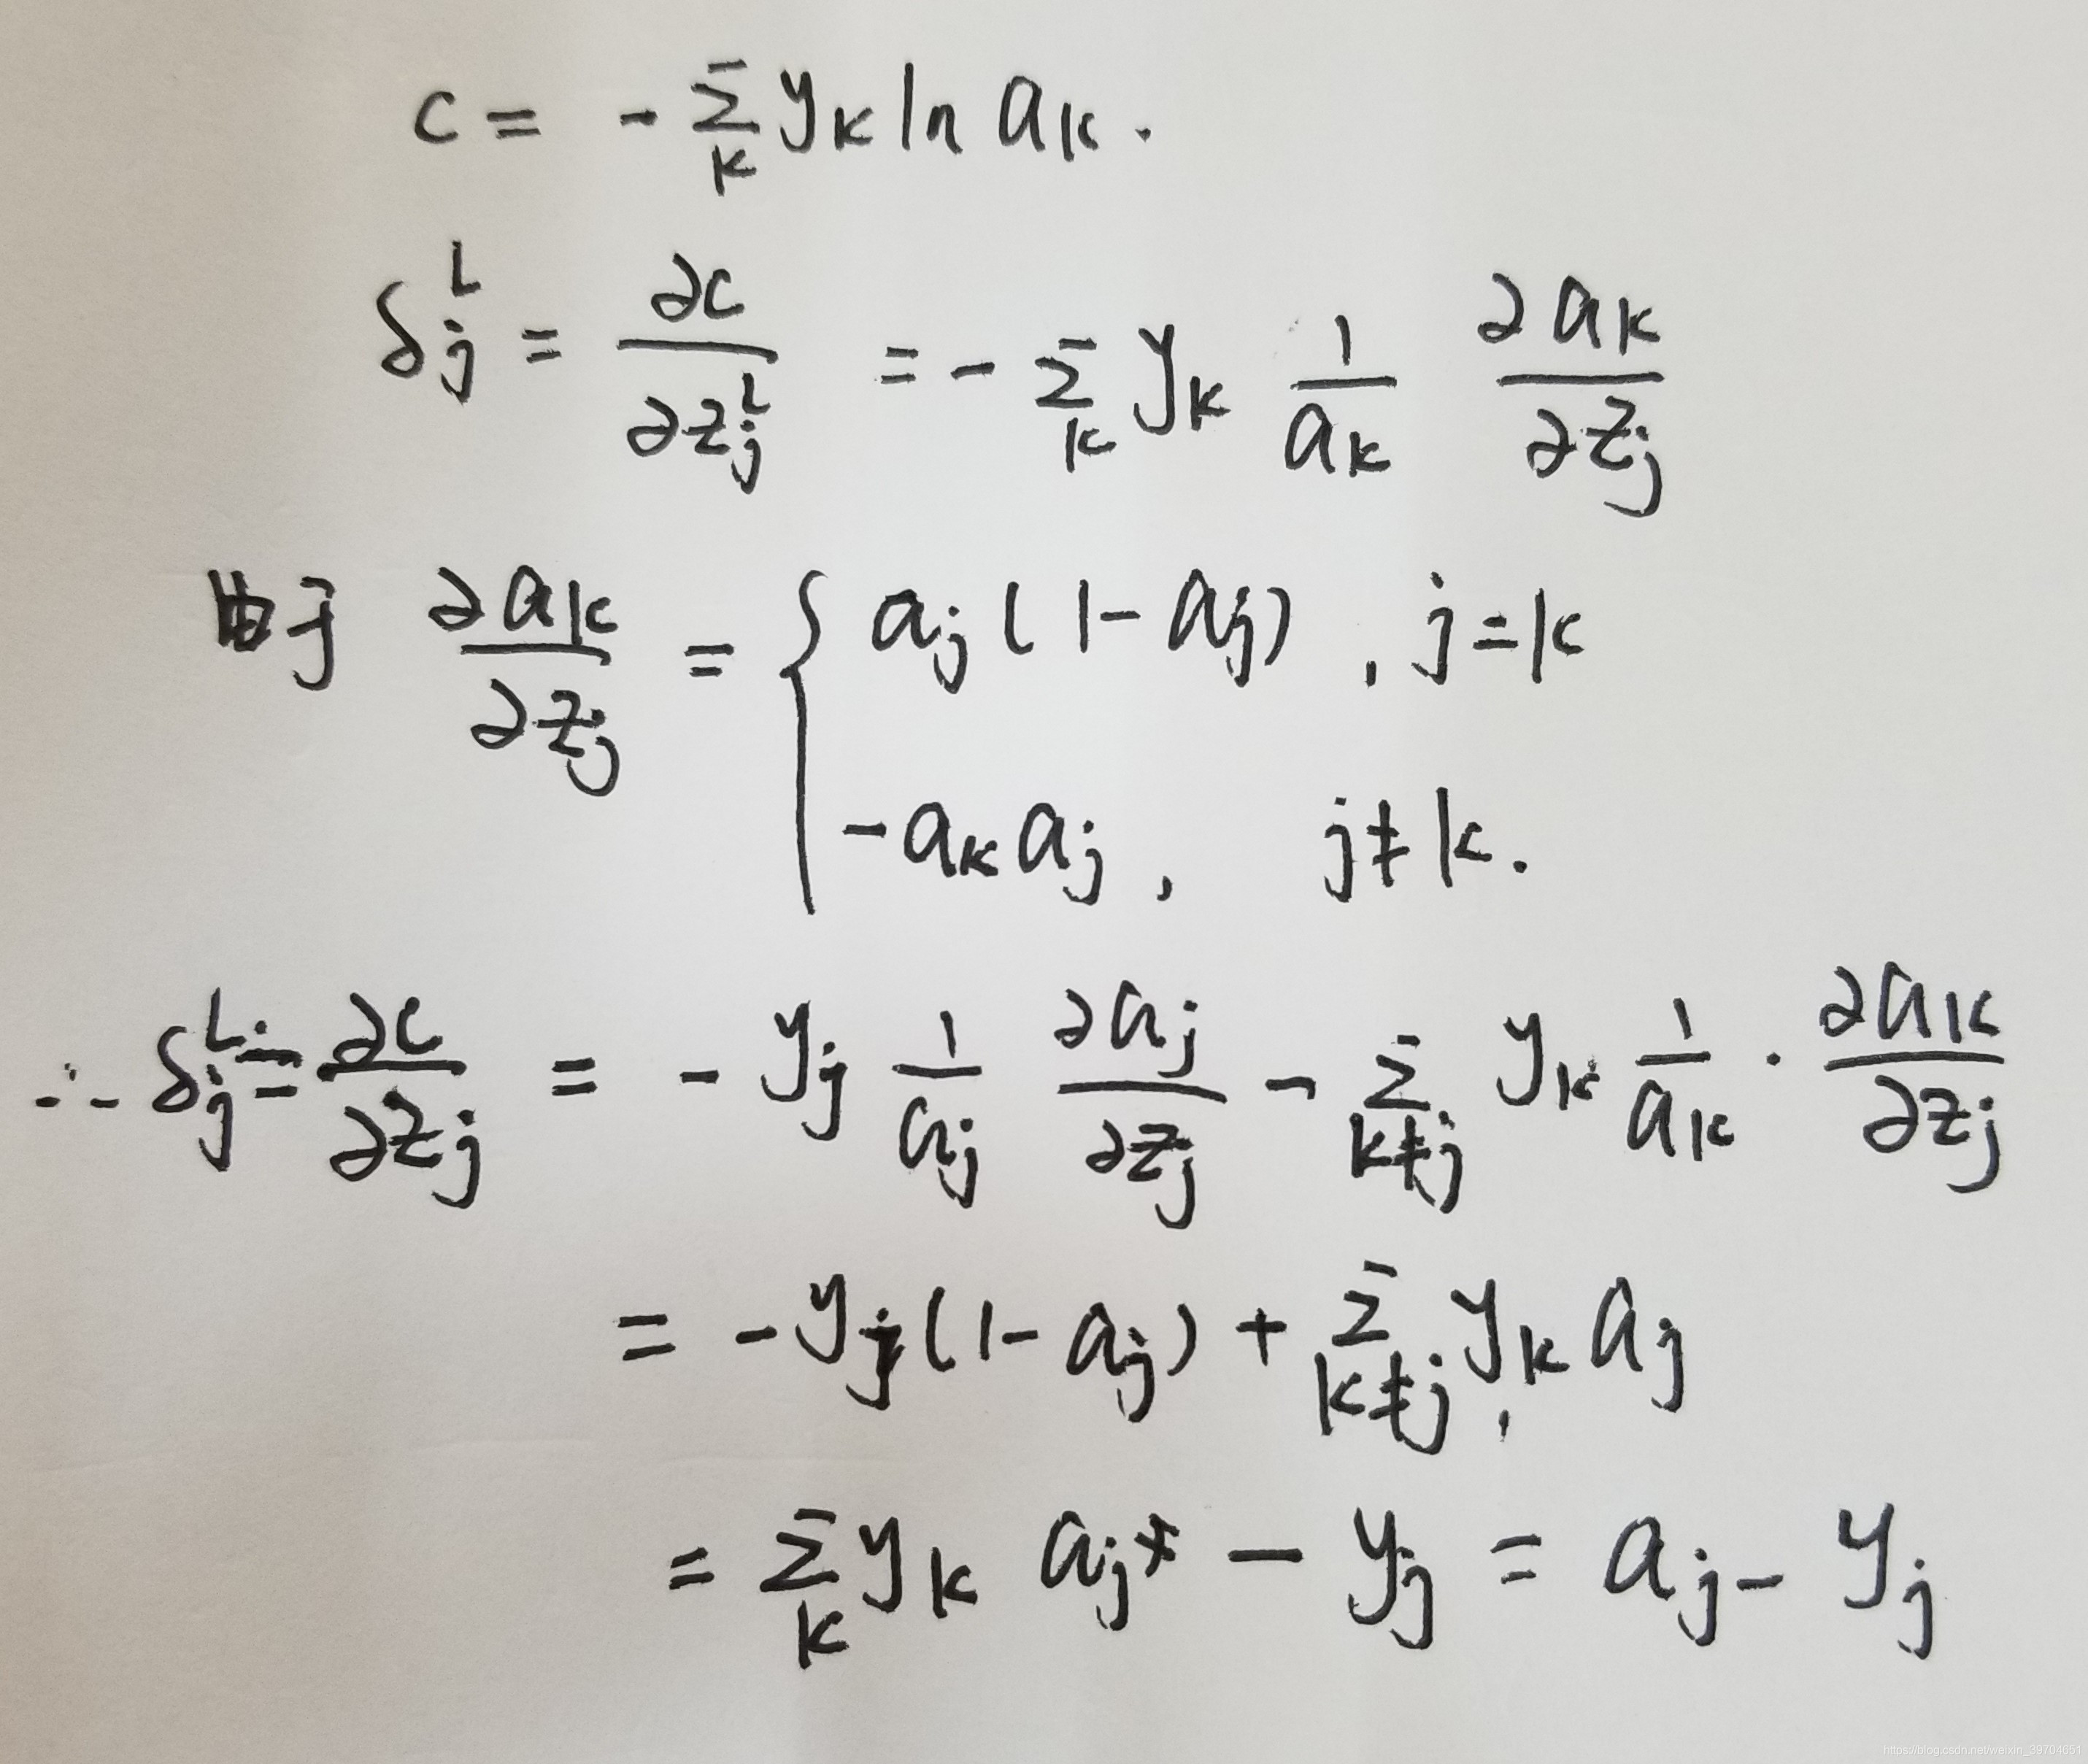 C = - Σ_k y_k ln a_k .
δ_j^L = ∂C/∂z_j^L = - Σ_k y_k 1/a_k ∂a_k/∂z_j
由于 ∂a_k/∂z_j = { a_j(1-a_j) , j=k
-a_k a_j , j≠k.
∴ δ_j^L = ∂C/∂z_j = - y_j 1/a_j ∂a_j/∂z_j - Σ_{k≠j} y_k 1/a_k · ∂a_k/∂z_j
= -y_j(1-a_j) + Σ_{k≠j} y_k a_j
= Σ_k y_k a_j - y_j = a_j - y_j
https://blog.csdn.net/weixin_39704651